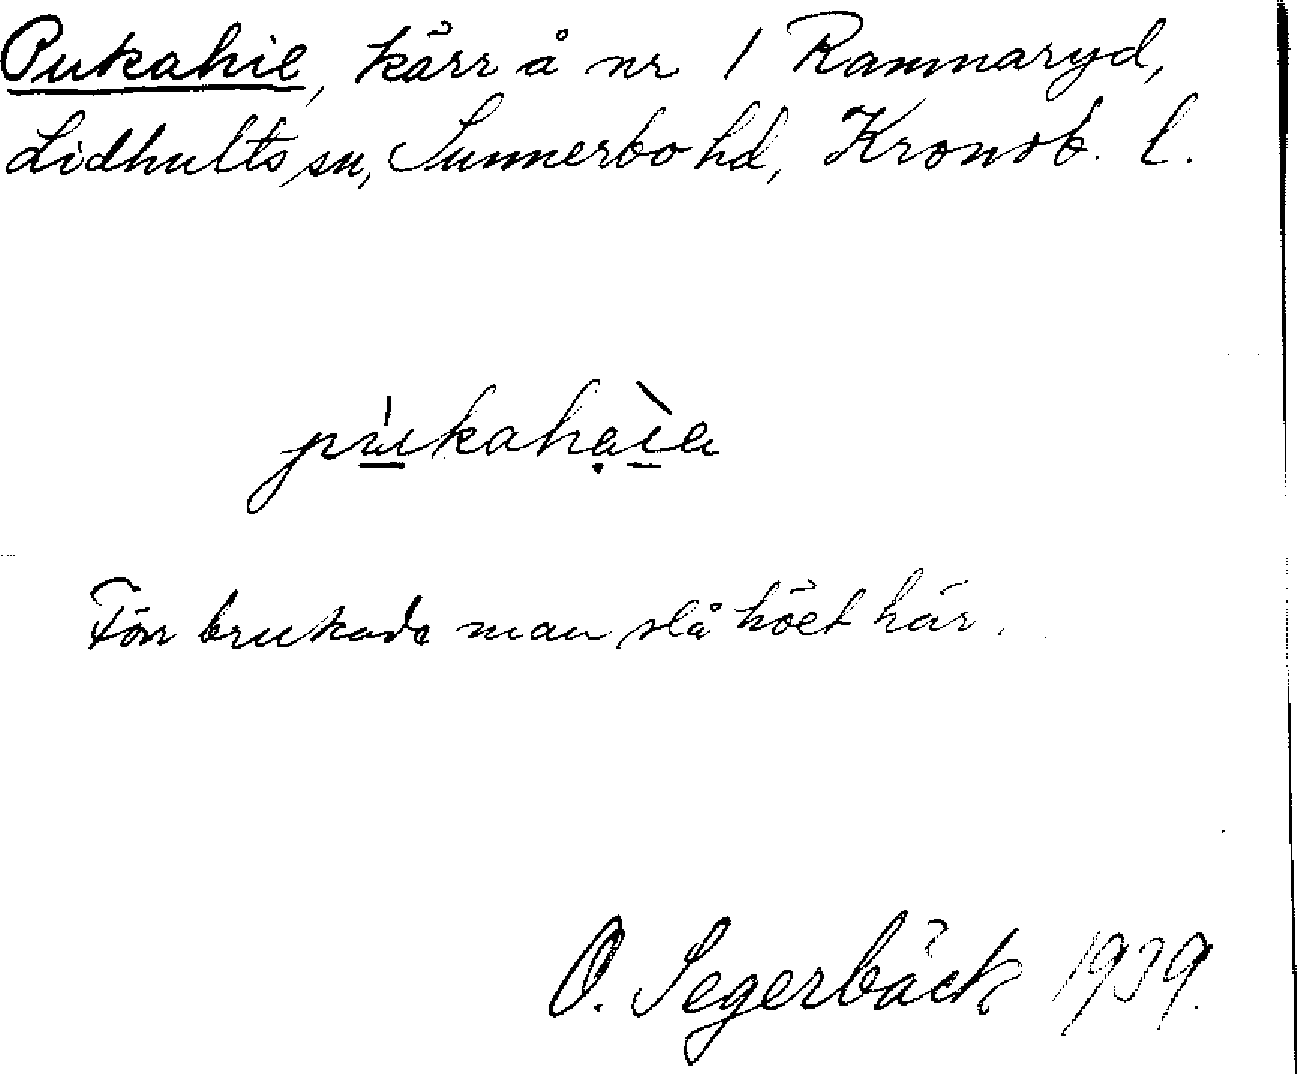 Pukahie, kärr å nr 1 Rammaryd,
Lidhults sn, Sunnerbo hd, Kronob. l.
Förr brukade man slå höet här.
O. Segerbäck 1939.